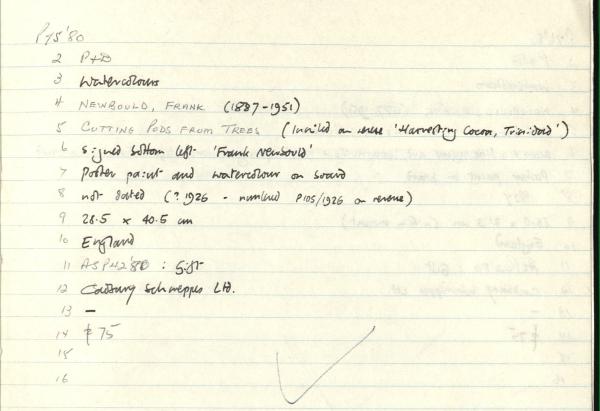 P75'80
2 P+D
3 Watercolours
4 NEWBOULD, FRANK (1887-1951)
5 CUTTING PODS FROM TREES (Inscribed on reverse 'Harvesting Cocoa, Trinidad')
6 Signed bottom left 'Frank Newbould'
7 Poster paint and watercolour on board
8 not dated (? 1926 - numbered P105/1926 on reverse)
9 28.5 x 40.5 cm
10 England
11 ASP42'80 : Gift
12 Cadbury Schweppes Ltd.
13 –
14 £75
15
16